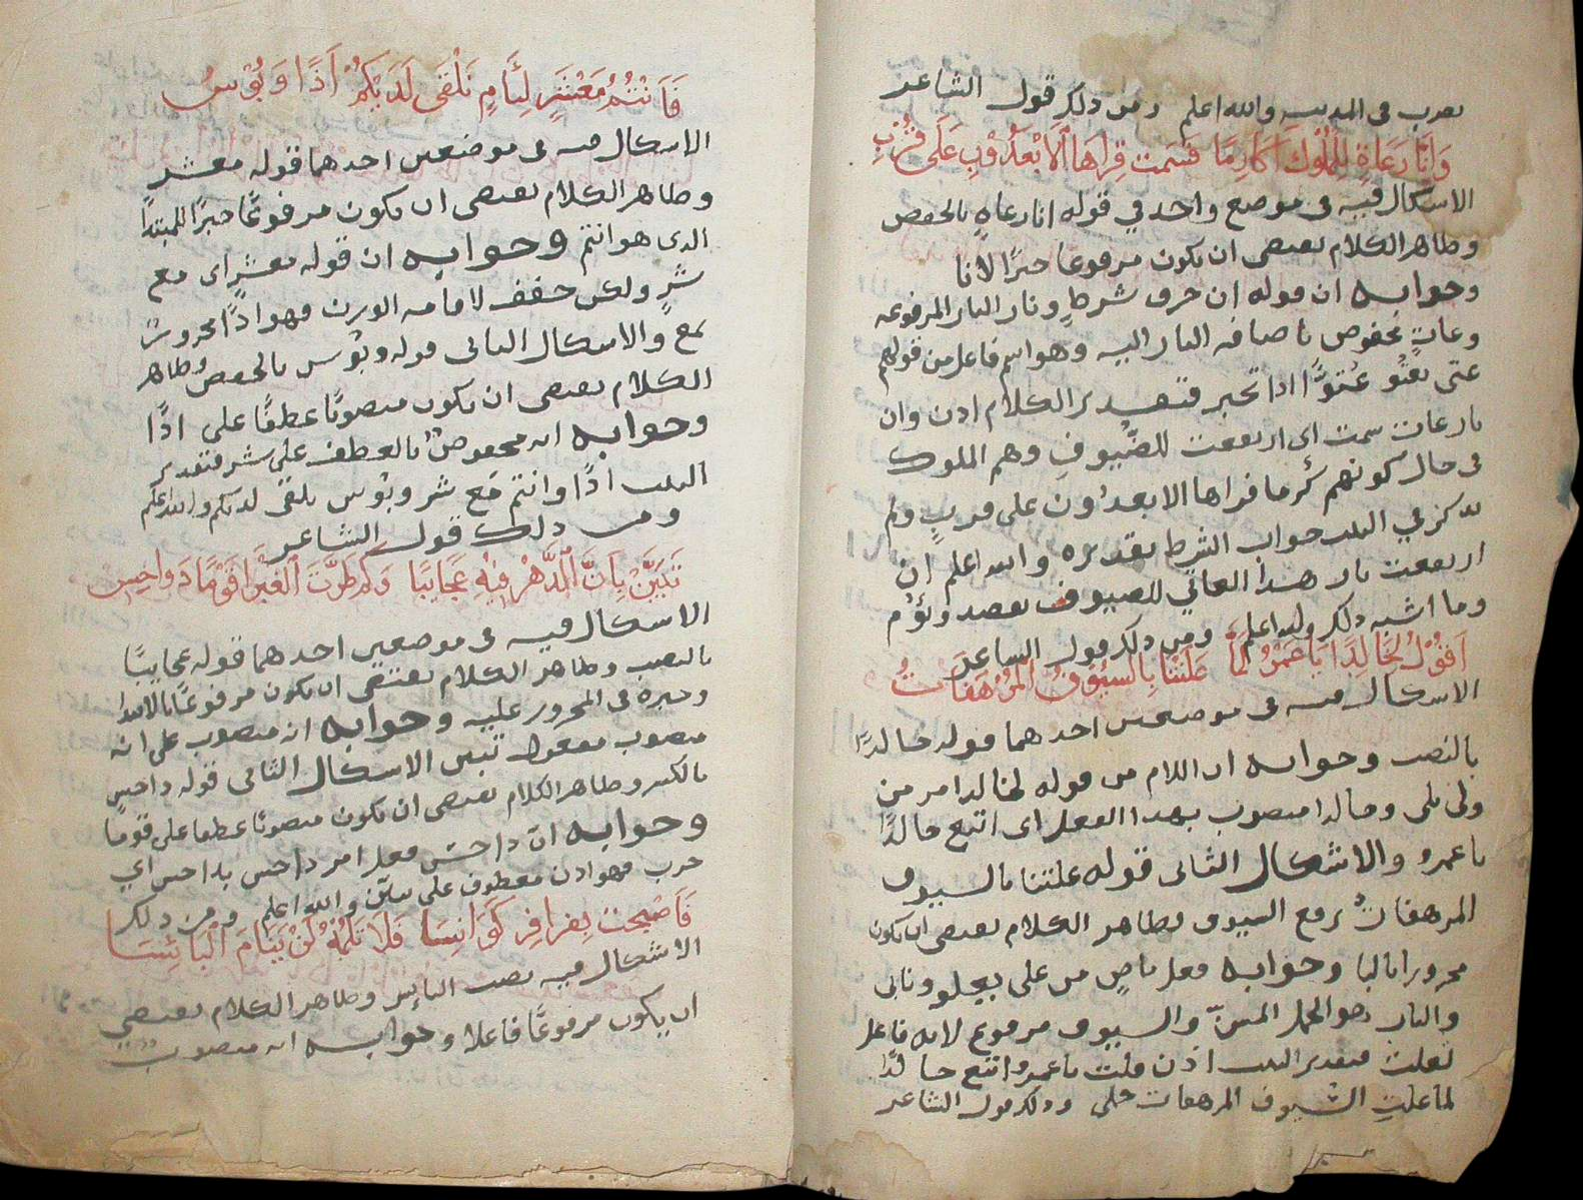 يعرب في المديب والله اعلم ومن ذلك قول الشاعر
وَاِنَّا رَعَاةٍ لِلمُلُوكَ اَكَارِمًا سَمت قِراهَا اَلاَبْعَدُونِ عَلَى قُرْبِ
الاسكال فيه في موضع واحد في قوله انا رعاةٍ بالخفض
وظاهر الكلام يقتضى ان يكون مرفوعا خبرًا لانا
وجوابه ان قوله ان حرف شرطٍ ونار النار المرفوعه
وعاتٍ مخفوض باضافه النار اليه وهو اسم فاعل من قولهم
عتى يعتُو عُتوًّا اذا تجبر فتقدير الكلام اذن وان
نار عات سمت اى ارتفعت للضُيوفِ وهم الملوك
فى حال كونهم كُرما قراها الابعدُون على قربٍ ولم
يذكر في البيت جواب الشرط تقديره والله اعلم ان
ارتفعت نار هذا العاتي للضيوف تقصد وتؤم
وما اشبه ذلك والله اعلم ومن ذلك قول الشاعر
اَقُوْلُ لِخَالِدًا يَا عَمْرُ لَمَّا عَلَتْنَا بِالسُّيُوْفُ المُرْهَفَاتُ
الاسكال فيه فى موضعين احدهما قوله خالدًا
بالنصب وجوابه ان اللام من قوله لخالدا امر من
ولى يلى وخالدا منصوب بهذا الفعل اى اتبع خالدًا
يا عمرو والاشكال الثانى قوله علتنا بالسيوف
المرهفاتُ برفع السيوف وظاهر الكلام يقتضى ان يكون
مجرورا بالبا وجوابه فعل ماضٍ من على يعلو ونابى
والناب هو الجمل المسنّ والسيوف مرفوع لانه فاعل
لعلت فتقدير البيت اذن قلت يا عمرو اتبع خالدًا
لما علتِ السُيوف المرهفات جملى وذلك قول الشاعر
فَاَنْتُمُ مَعْشَرٍ لِئَامٍ نَلْقَى لَدَيْكُمْ اَذًا وَبُوْسٍ
الاسكال فيه فى موضعين احدهما قوله معشرٍ
وظاهر الكلام يقتضى ان يكون مرفوعًا خبرًا للمبتدا
الذى هو انتم وجوابه ان قوله معشرٍ اى مع
شرٍ ولكن خفف لاقامه الوزن فهو اذًا مجرورٌ
بمع والاسكال الثانى قوله وبُوس بالخفض وظاهر
الكلام يقتضى ان يكون منصوبًا عطفًا على اذًا
وجوابه انه مخفوضٌ بالعطف على شر فتقدير
البيت اذًا وانتم مَع شر وبُوس نلقى لديكم والله اعلم
ومن ذلك قول الشاعر
تَبَيَّنْ بِاَنَّ الدَّهْرَ فِيْهِ عَجَايبًا وَكم طَرَّتَ الغَبْرَا قَوْمًا دَواحِسِ
الاسكال فيه فى موضعين احدهما قوله عجايبًا
بالنصب وظاهر الكلام يقتضى ان يكون مرفوعًا بالابتدا
وخبره فى المجرور عليه وجوابه انه منصوب على انه
منصوب مفعول تبين الاسكال الثانى قوله داحس
بالكسر وظاهر الكلام يقتضى ان يكون منصوبًا عطفا على قومًا
وجوابه انّ داحسِ فعل امر داحس يداحس اي
حرب فهو اذن معطوف على تبيّن والله اعلم ومن ذلك
فَاَصْبَحَتْ بِقرَاقِرِ كَوَانِسَا فَلاَ تَلُمْهُ اَنْ يَنَامَ الْبَائِسَا
الاشكال فيه نصب البايس وظاهر الكلام يقتضي
ان يكون مرفوعًا فاعلا وجوابه انه منصوب